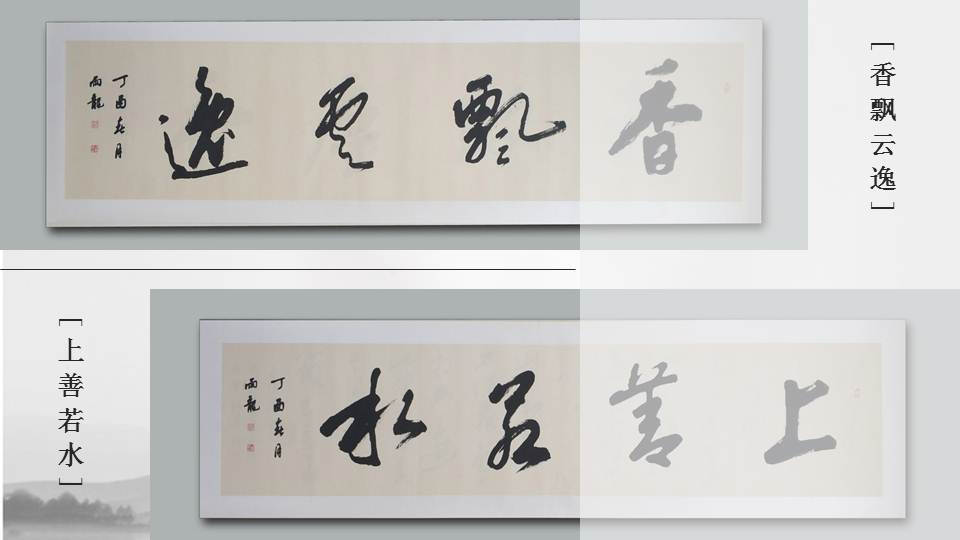 香飘云逸
丁酉春月
雨龍
[香飘云逸]
[上善若水]
上善若水
丁酉春月
雨龍